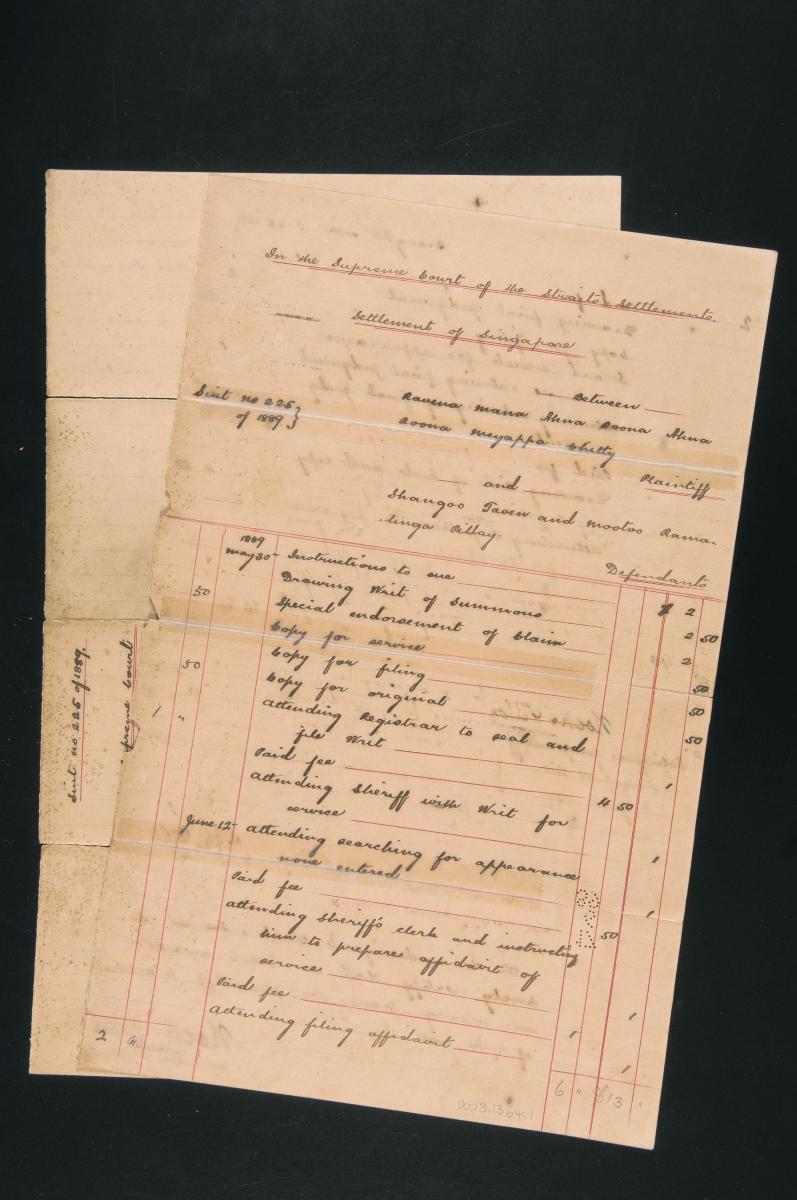 In the Supreme Court of the Straits Settlements.
Settlement of Singapore
Between
Suit no 225
of 1889}
Ravena mana Ahna Roona Ahna
Roona meyappa Chitty
Plaintiff
and
Shangoo Taven and mootoo Rama-
-linga Pillay.
Defendants
1889
may 30 - Instructions to sue 2
50 Drawing Writ of Summons 2 50
Special endorsement of Claim 2
Copy for service 50
50 Copy for filing 50
Copy for original 50
1 " Attending Registrar to seal and
file Writ 1
Paid fee 4 50
Attending Sheriff with Writ for
service 1
June 12 - Attending searching for appearance
none entered 1
Paid fee 50
Attending Sheriff's clerk and instructing
him to prepare affidavit of
service 1
Paid fee 1
Attending filing affidavit 1
2 6 " 13 "
Suit no 225 of 1889.
preme Court